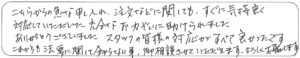 こちらからの急な申し入れ、注文などに関しても、すぐに気持良く
対応していただいた。おかげでお力ぞいに助けられました
ありがとうございました スタッフの皆様の対応がすべて良かったです
これからも法業に関して知らない事、御相談させていただきます。よろしくお願いします